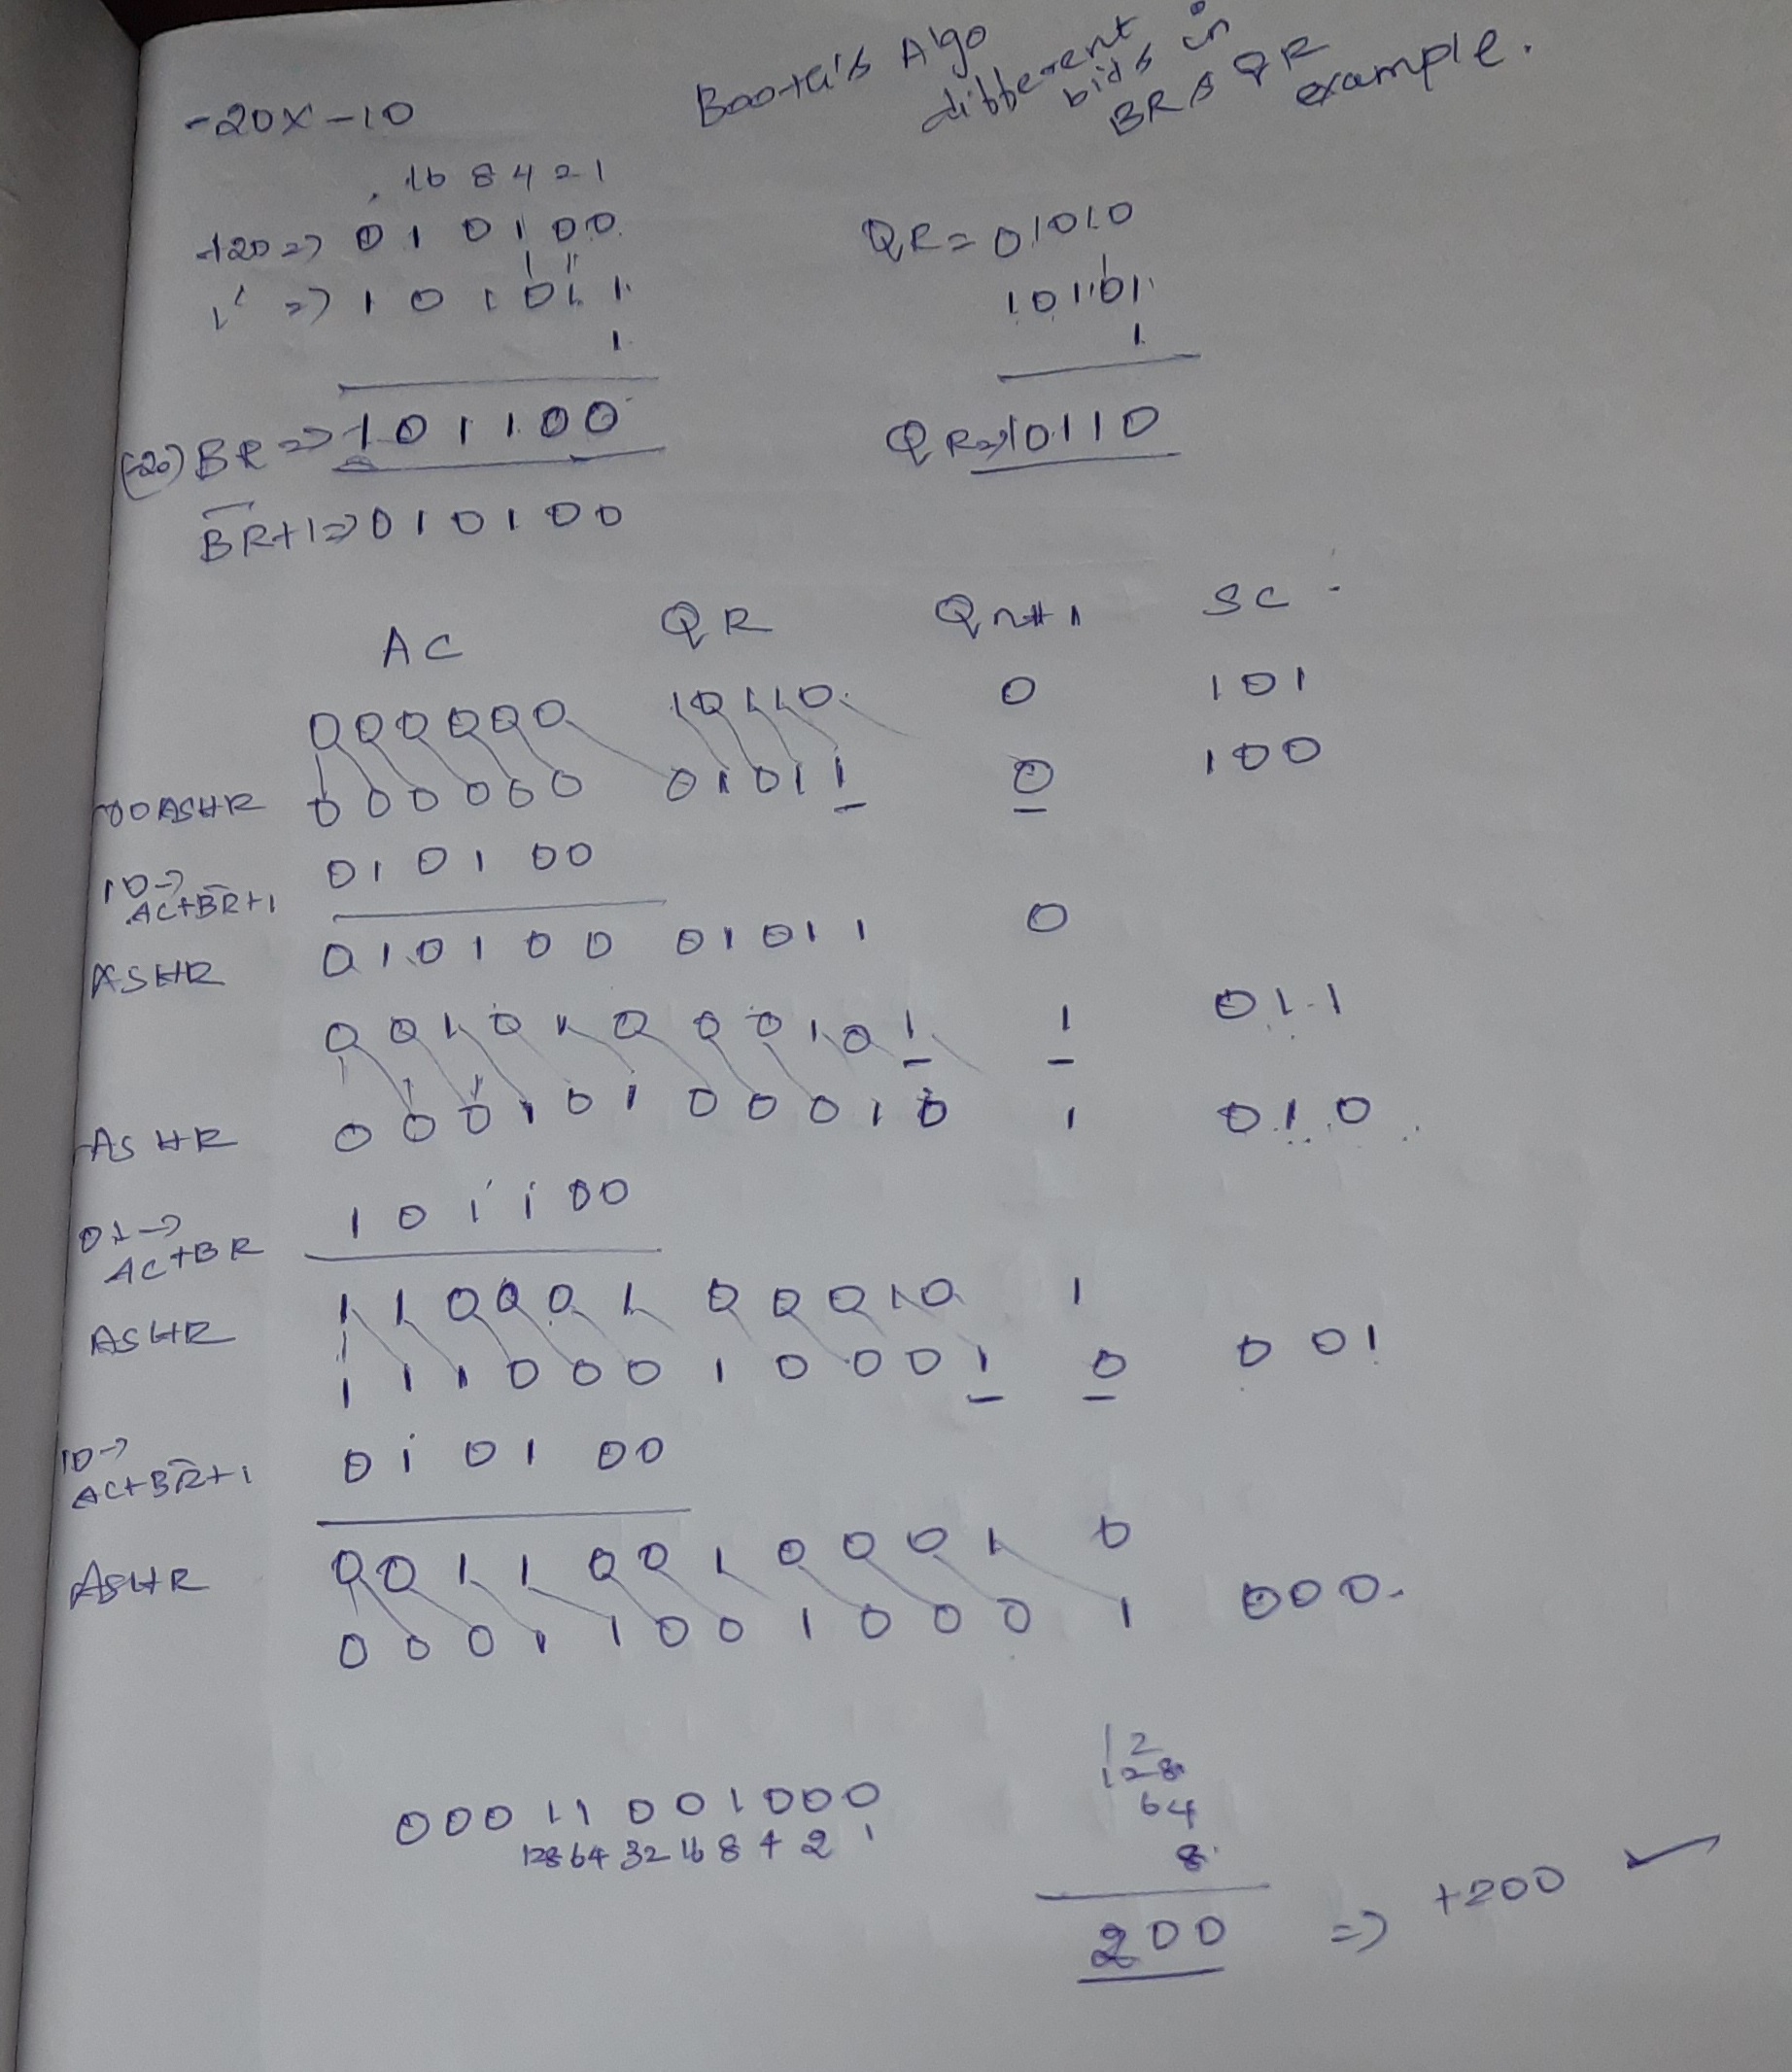 Booth's Algo
different
bits in
BR & QR
example.
-20x-10
16 8 4 2 1
+20 => 0 1 0 1 0 0
1' => 1 0 1 0 1 1
1
(-20) BR => 1 0 1 1 0 0
BR+1 => 0 1 0 1 0 0
QR = 01010
10101
1
QR => 10110
AC QR Qn+1 SC
0 0 0 0 0 0 1 0 1 1 0 0 101
00 ASHR 0 0 0 0 0 0 0 1 0 1 1 0 100
10 -> AC+BR+1 0 1 0 1 0 0
ASHR 0 1 0 1 0 0 0 1 0 1 1 0
0 0 1 0 1 0 0 0 1 0 1 1 011
ASHR 0 0 0 1 0 1 0 0 0 1 0 1 010
01 -> AC+BR 1 0 1 1 0 0
ASHR 1 1 0 0 0 1 0 0 0 1 0 1
1 1 1 0 0 0 1 0 0 0 1 0 001
10 -> AC+BR+1 0 1 0 1 0 0
ASHR 0 0 1 1 0 0 1 0 0 0 1 0
0 0 0 1 1 0 0 1 0 0 0 1 000
12
128
64
8
200 => +200 ✓
0 0 0 1 1 0 0 1 0 0 0
128 64 32 16 8 4 2 1